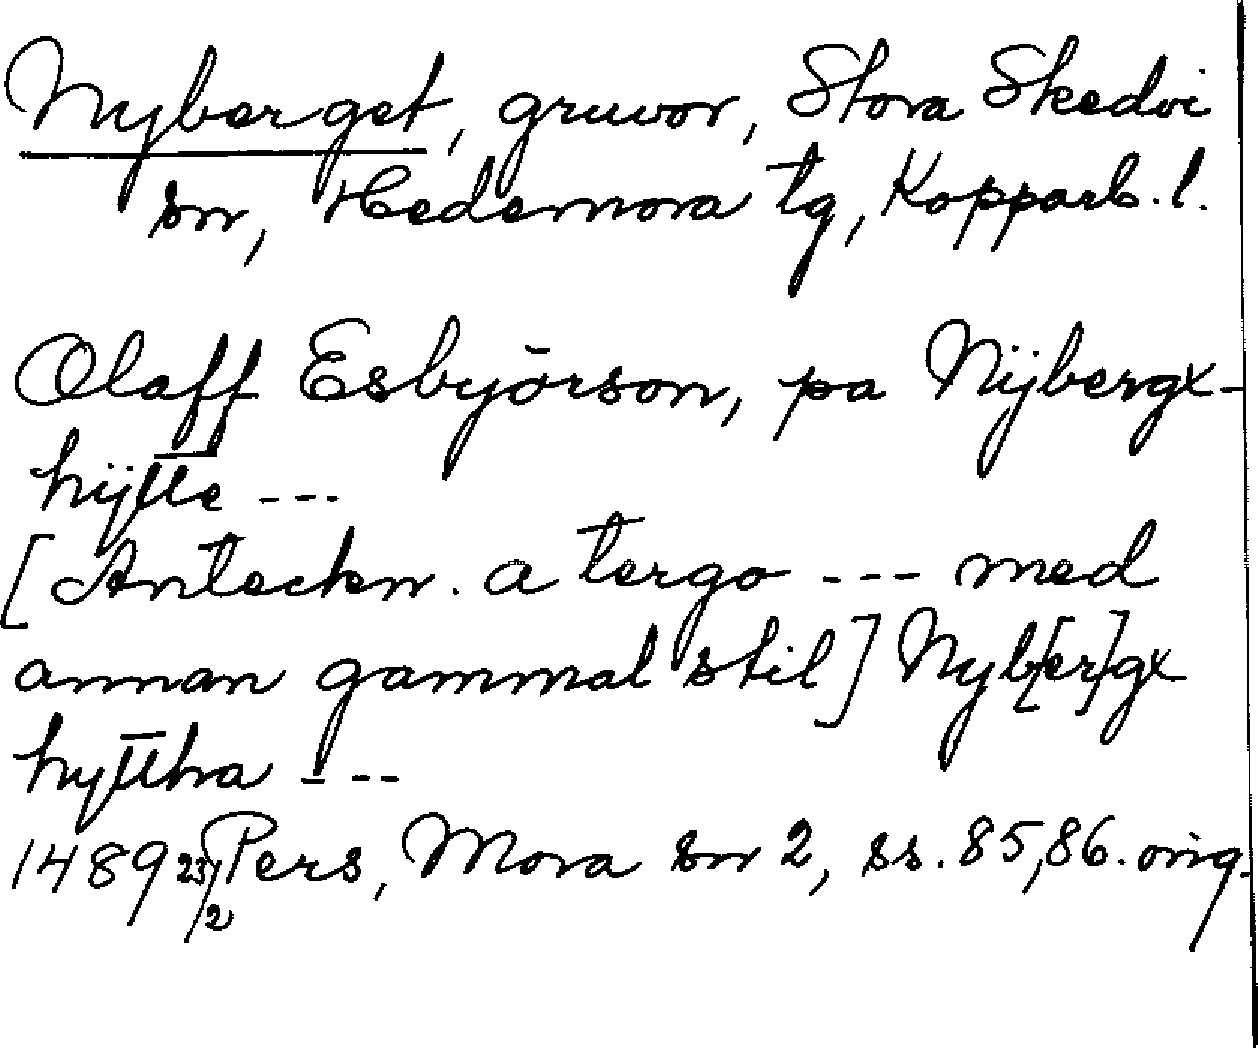 Nyberget, gruvor, Stora Skedvi
sn, Hedemora tg, Kopparb. l.
Olaff Esbyörson, pa Nÿbergx-
hÿtte ---
[Anteckn. a tergo --- med
annan gammal stil] Nyb[er]gx
hyttha ---
1489 23/2 Pers, Mora sn 2, ss. 85, 86. orig.